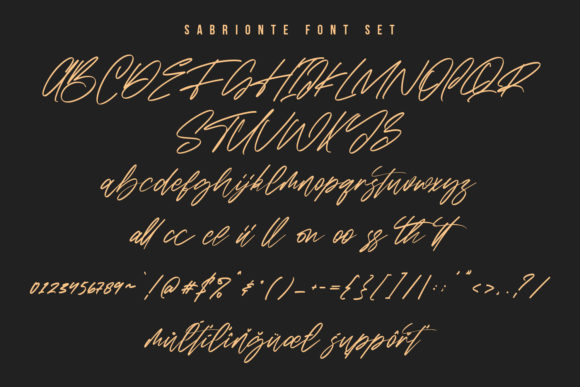 SABRIONTE FONT SET
ABCDEFGHIJKLMNOPQR
STUVWXYZ
abcdefghijklmnopqrstuvwxyz
all cc ee ii ll on oo ss th tt
0123456789~`!@#$%^&*()_+-={}[]||::'"<>,.?/
mùltilingüæl support